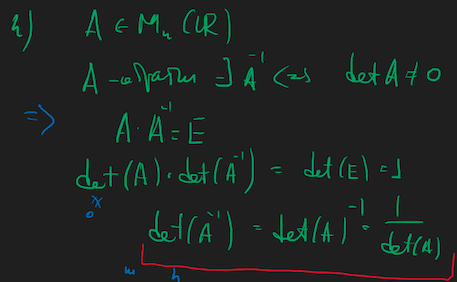 4) A ∈ Mₙ(ℝ)
A - обратим ∃ A⁻¹ <=> det A ≠ 0
=> A · A⁻¹ = E
det(A) · det(A⁻¹) = det(E) = 1
≠
0
det(A⁻¹) = det(A)⁻¹ = 1/det(A)